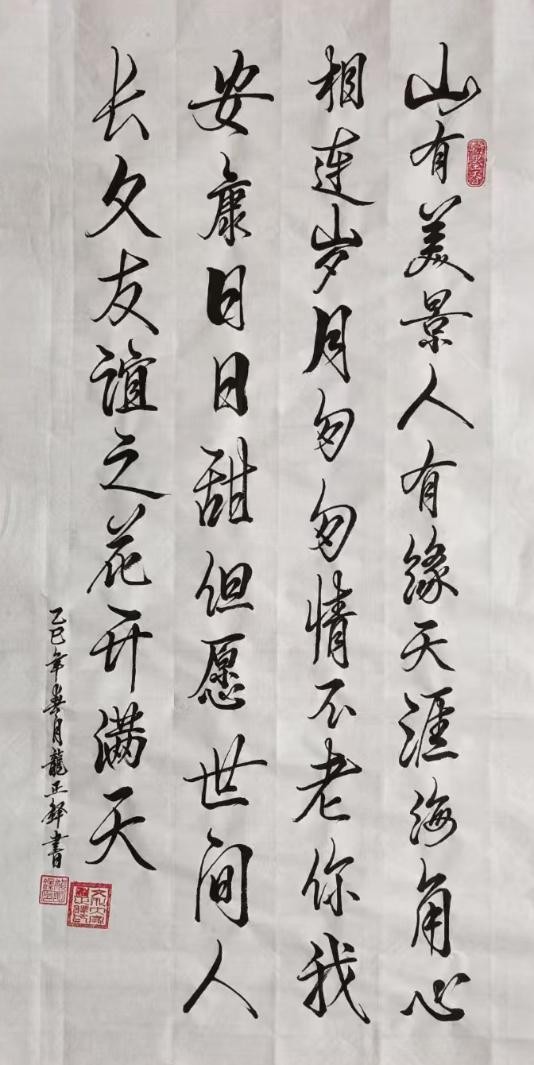 山有美景人有缘天涯海角心
相连岁月匆匆情不老你我
安康日日甜但愿世间人
长久友谊之花开满天
乙巳年春月龍正鐸書